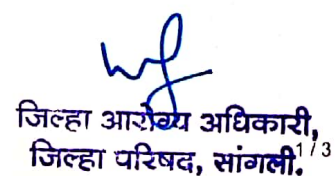 जिल्हा आरोग्य अधिकारी,
जिल्हा परिषद, सांगली. 1/3